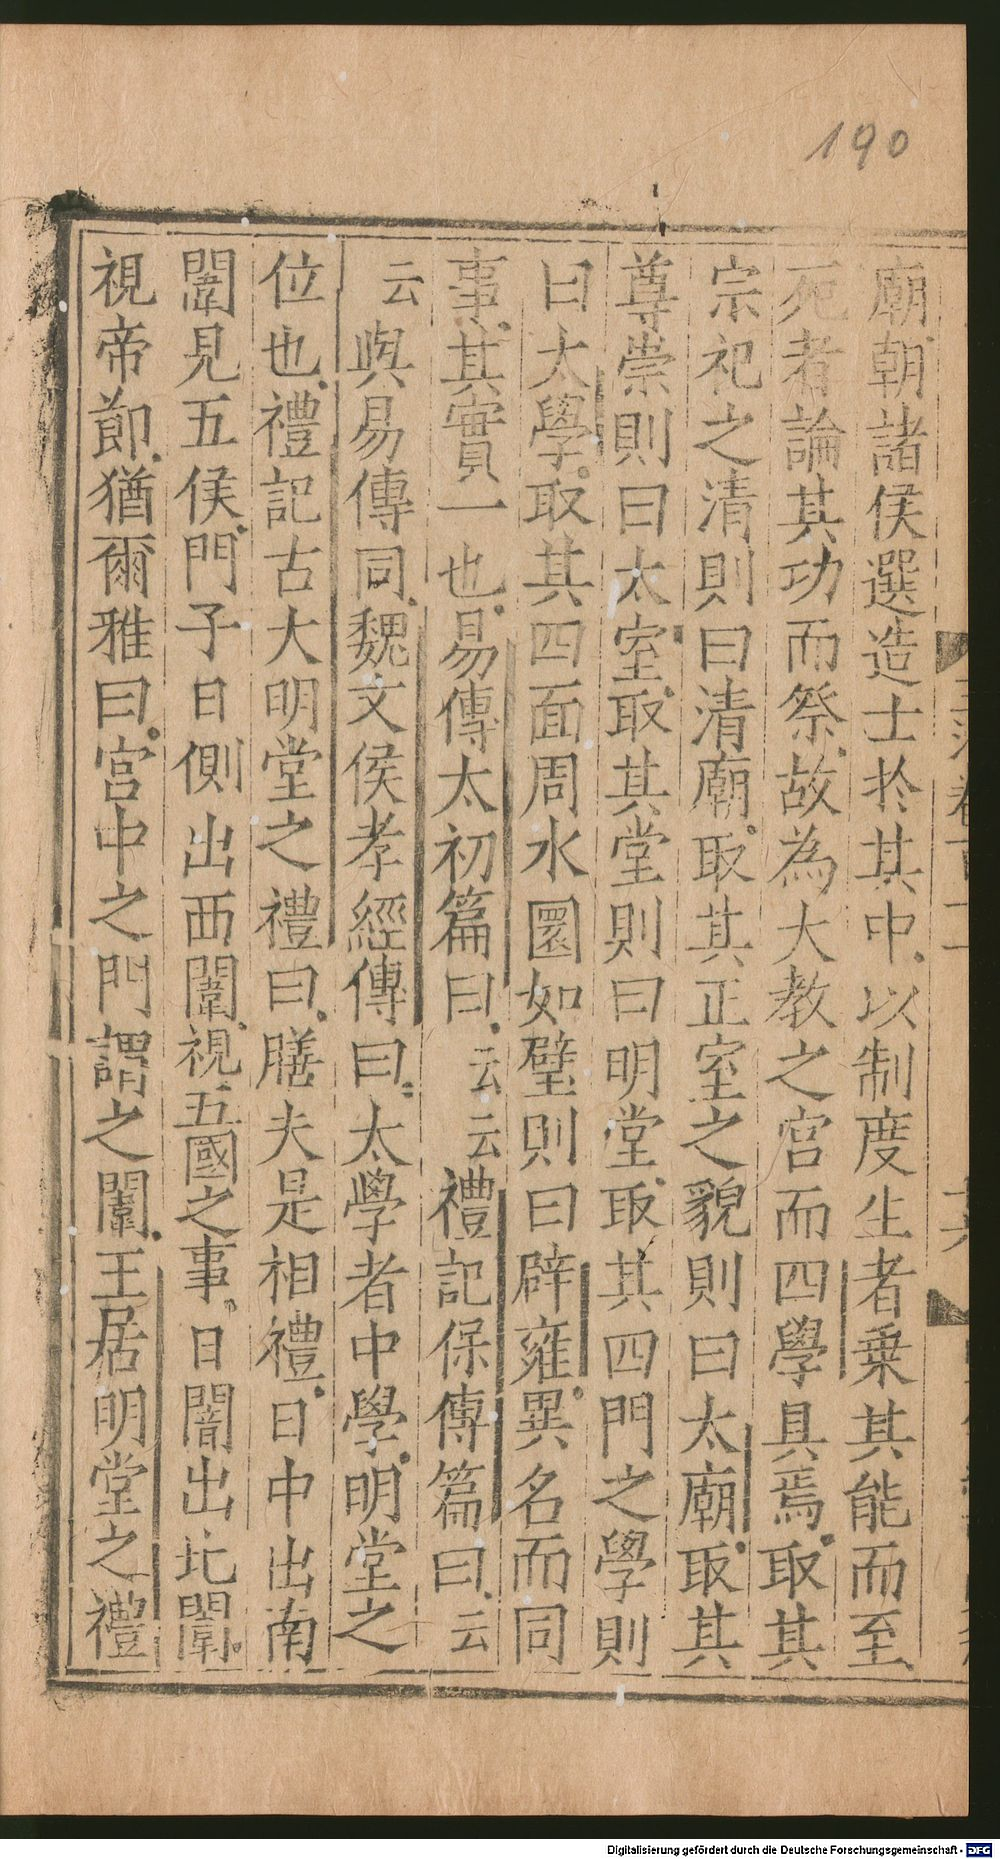 190
廟朝諸侯選造士於其中以制度生者乗其能而至
死者論其功而祭故為大教之宮而四學具焉取其
宗祀之清則曰清廟取其正室之貌則曰太廟取其
尊崇則曰太室取其堂則曰明堂取其四門之學則
曰太學取其四面周水圜如璧則曰辟雍異名而同
事其實一也易傳太初篇曰云云禮記保傳篇曰云
云與易傳同魏文侯孝經傳曰太學者中學明堂之
位也禮記古大明堂之禮曰膳夫是相禮日中出南
闈見五侯門子日側出西闈視五國之事日闇出北闈
視帝節猶爾雅曰宮中之門謂之闈王居明堂之禮
Digitalisierung gefördert durch die Deutsche Forschungsgemeinschaft - DFG